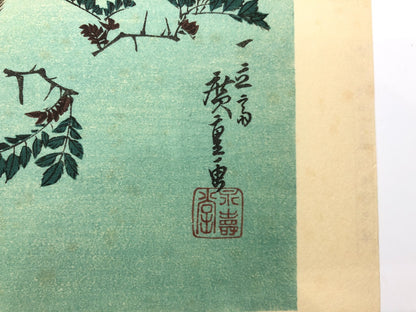 一立斎
廣重画
永壽堂